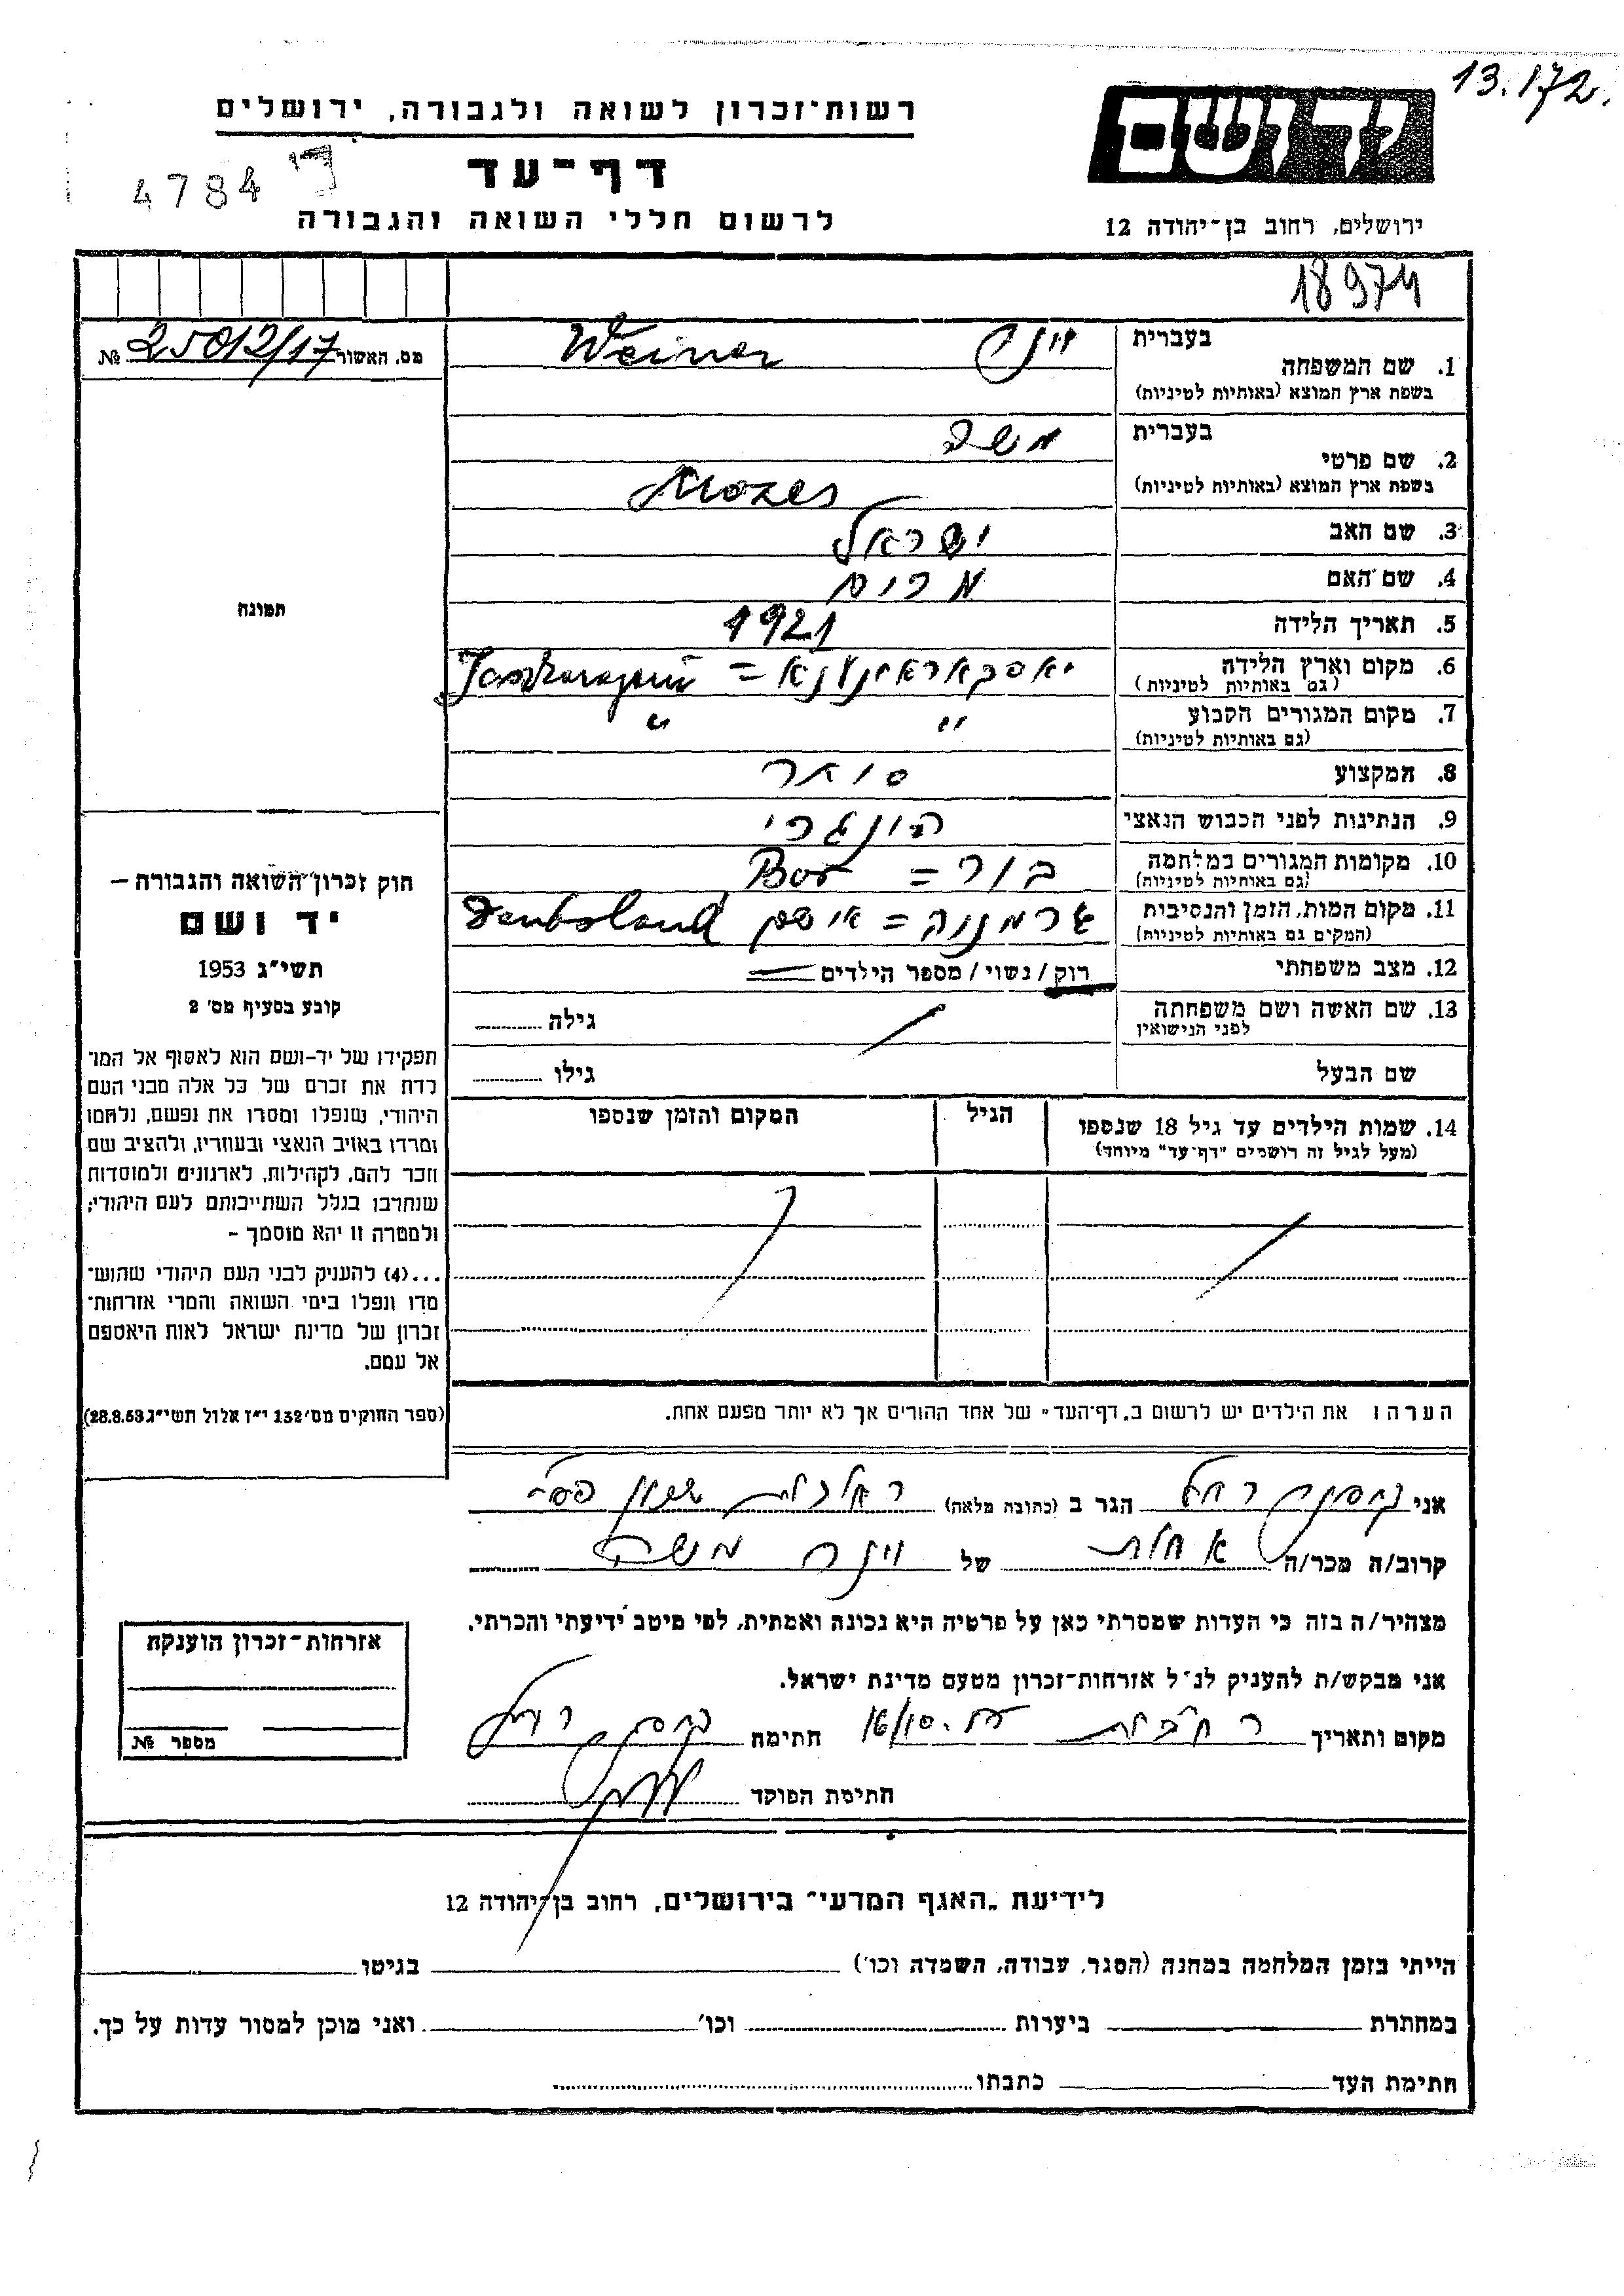 13.172.
יד ושם
רשות־זכרון לשואה ולגבורה, ירושלים
דף־עד
4784
לרשום חללי השואה והגבורה
ירושלים, רחוב בן־יהודה 12
18974
1. שם המשפחה
בעברית
בשפת ארץ המוצא (באותיות לטיניות)
וינר Weiner
מס. האשור 25012/17 №
2. שם פרטי
בעברית משה
בשפת ארץ המוצא (באותיות לטיניות) Mozes
3. שם האב ישראל
4. שם האם מרים
5. תאריך הלידה 1921
6. מקום וארץ הלידה
(גם באותיות לטיניות)
7. מקום המגורים הקבוע " "
(גם באותיות לטיניות)
8. המקצוע סוחר
9. הנתינות לפני הכבוש הנאצי הונגרי
10. מקומות המגורים במלחמה בור = Bor
(גם באותיות לטיניות)
11. מקום המות, הזמן והנסיבות
(המקום גם באותיות לטיניות)
12. מצב משפחתי רוק / נשוי / מספר הילדים
13. שם האשה ושם משפחתה
לפני הנישואין
גילה
שם הבעל גילו
14. שמות הילדים עד גיל 18 שנספו
(מעל לגיל זה רושמים "דף־עד" מיוחד)
הגיל
המקום והזמן שנספו
תמונה
חוק זכרון השואה והגבורה –
יד ושם
תשי״ג 1953
קובע בסעיף מס׳ 2
תפקידו של יד-ושם הוא לאסוף אל המו־
לדת את זכרם של כל אלה מבני העם
היהודי, שנפלו ומסרו את נפשם, נלחמו
ומרדו באויב הנאצי ובעוזריו, ולהציב שם
וזכר להם, לקהילות, לארגונים ולמוסדות
שנחרבו בגלל השתייכותם לעם היהודי;
ולמטרה זו יהא מוסמך –
...(4) להעניק לבני העם היהודי שהוש־
מדו ונפלו בימי השואה והמרי אזרחות־
זכרון של מדינת ישראל לאות היאספם
אל עמם.
(ספר החוקים מס׳ 132 י״ז אלול תשי״ג 28.8.53)
הערה: את הילדים יש לרשום ב„דף־העד" של אחד ההורים אך לא יותר מפעם אחת.
אני רחל הגר ב (כתובת מלאה)
קרוב/ה מכר/ה אחות של וינר משה
מצהיר/ה בזה כי העדות שמסרתי כאן על פרטיה היא נכונה ואמתית, לפי מיטב ידיעתי והכרתי.
אני מבקש/ת להעניק לנ״ל אזרחות־זכרון מטעם מדינת ישראל.
מקום ותאריך רחובות חתימה
חתימת הפוקד
אזרחות־זכרון הוענקה
מספר №
לידיעת „האגף המדעי" בירושלים, רחוב בן־יהודה 12
הייתי בזמן המלחמה במחנה (הסגר, עבודה, השמדה וכו׳) בגיטו
במחתרת ביערות וכו׳ ואני מוכן למסור עדות על כך.
חתימת העד כתבתו